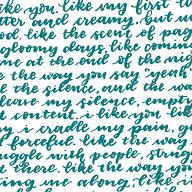 like you. like my first
tter and creamy. but w
ool. like the scent of pag
gloomy days. like comin
at the end of the nig
the way you say "yeah
the silence, and the wa
leave my silence, empt
content. i like you. lik
y i cradle my pain, g
forceful. like the way
uggle with people, strug
there. like the way
ing me along. okay